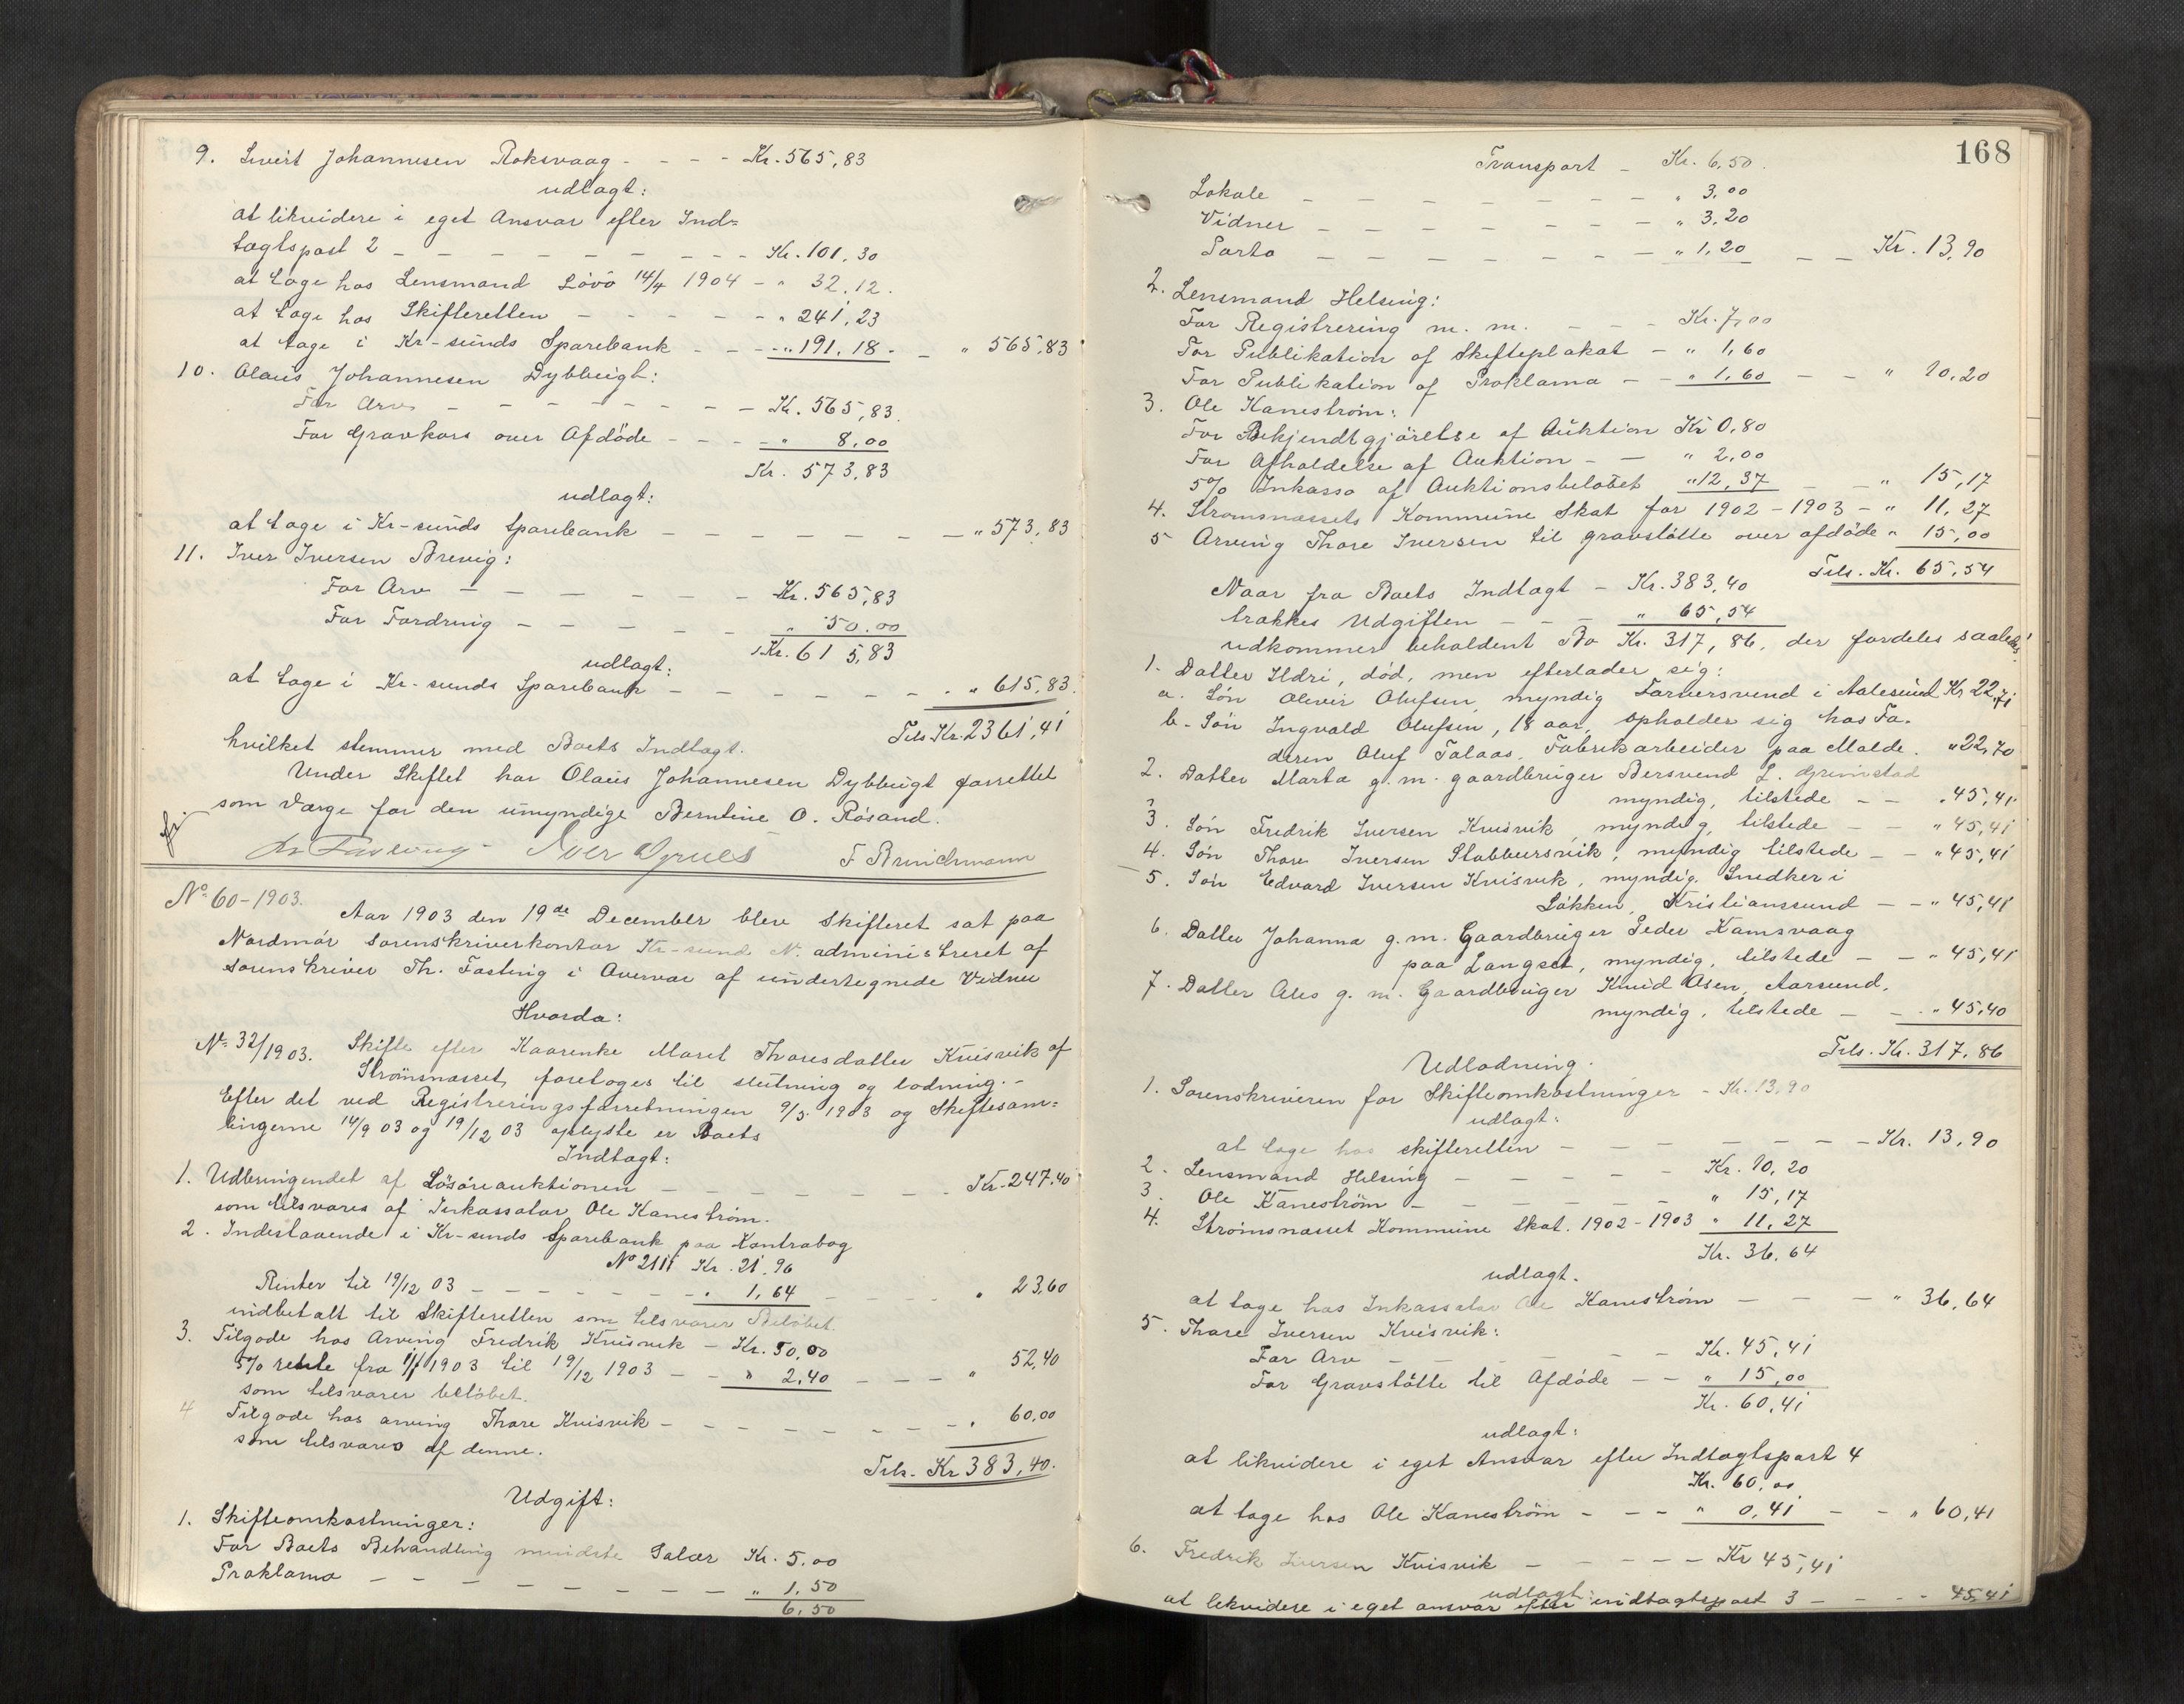 9. Sivert Johannesen Roksvaag - - - - Kr. 565,83
udlagt:
at likvidere i eget Ansvar efter Ind-
tægtspost 2 - - - - - - - - - Kr. 101,30
at tage hos Lensmand Lövö 14/4 1904 - " 32.12.
at tage hos Skifteretten - - - - - - " 241,23
at tage i Kr-sunds Sparebank - - - " 191.18. - " 565,83
10. Olaus Johannesen Dybbugt:
For Arv - - - - - - - - Kr. 565,83.
For Gravkors over Afdöde - - - - " 8,00
Kr. 573,83
udlagt:
at tage i Kr-sunds Sparebank - - - - - - - " 573,83
11. Iver Iversen Brevig:
For Arv - - - - - - - Kr. 565,83
For Fordring - - - - - - " 50.00
Kr. 615,83
udlagt:
at tage i Kr-sunds Sparebank - - - - - - - " 615,83.
Tils. Kr. 2361,41
hvilket stemmer med Boets Indtægt.
Under Skiftet har Olaus Johannesen Dybbugt forrettet
som Værge for den umyndige Berntine O. Rösand.
Th Fasting Iver F Brinchmann
No 60-1903.
Aar 1903 den 19de December blev Skifteret sat paa
Nordmör sorenskriverkontor Kr-sund N. administreret af
sorenskriver Th. Fasting i Overvær af undertegnede Vidner
Hvorda:
No 32/1903. Skifte efter Kaarenke Maret Thoresdatter Kvisvik af
Strömsnæsset, foretoges til slutning og lodning. -
Efter det ved Registreringsforretningen 9/5 1903 og Skiftesam-
lingerne 14/9 03 og 19/12 03 oplyste er Boets
Indtægt:
1. Udbringendet af Lösöreauktionen - - - - - - - Kr. 247.40
som tilsvares af Inkassator Ole Kaneström.
2. Indestaaende i Kr-sunds Sparebank paa Kontrabog
No 2111 Kr. 21.96
Renter til 19/12 03 - - - - - - - " 1,64 - - - - " 23,60
indbetalt til Skifteretten som tilsvarer Belöbet.
3. Tilgode hos Arving Fredrik Kvisvik - Kr. 50,00
5% rente fra 1/1 1903 til 19/12 1903 - - " 2,40 - - - " 52,40
som tilsvarer belöbet.
4 Tilgode hos arving Thore Kvisvik - - - - - - - " 60,00
som tilsvares af denne.
Tils. Kr 383,40.
Udgift:
1. Skifteomkostninger:
For Boets Behandling mindste Salær Kr. 5.00
Proklama - - - - - - - - " 1.50
6,50
168
Transport - Kr. 6,50.
Lokale - - - - - - - - " 3.00
Vidner - - - - - - - - " 3,20
Porto - - - - - - - - " 1,20 - - Kr. 13,90
2. Lensmand Helsing:
For Registrering m. m. - - - Kr. 7,00
For Publikation af Skifteplakat - " 1,60
For Publikation af Proklama - - " 1,60 - - " 10,20
3. Ole Kaneström:
For Bekjendtgjörelse af Auktion Kr 0,80
For Afholdelse af Auktion - - " 2,00
5% Inkasso af Auktionsbelöbet " 12,37 - - " 15,17
4. Strömsnæssets Kommune Skat for 1902-1903 - " 11,27
5 Arving Thore Iversen til gravstötte over afdöde " 15,00
Tils. Kr. 65,54
Naar fra Boets Indtægt - Kr. 383,40
trækkes Udgiften - - - " 65,54
udkommer beholdent Bo Kr. 317,86, der fordeles saaledes:
1. Datter Ildri, död, men efterlader sig:
a. Sön Oliver Olufsen, myndig Farversvend i Aalesund Kr 22,71
b. Sön Ingvald Olufsen, 18 aar, opholder sig hos Fa-
deren Oluf Talaas, Fabrikarbeider paa Molde. " 22,70
2. Datter Marta g. m. gaardbruger Bersvend L. Grimstad
myndig, tilstede - - " 45,41
3. Sön Fredrik Iversen Kvisvik, myndig, tilstede - - " 45,41
4. Sön Thore Iversen Stabbursvik, myndig tilstede - - " 45,41
5. Sön Edvard Iversen Kvisvik, myndig. Snedker i
Lökken, Kristianssund - - " 45,41
6. Datter Johanna g. m. Gaardbruger Peder Kamsvaag
paa Langset, myndig, tilstede - - " 45,41
7. Datter Ales g. m. Gaardbruger Knud Osen, Aarsund,
myndig, tilstede - - " 45,40
Tils. Kr. 317,86
Udlodning.
1. Sorenskriveren for Skifteomkostninger - Kr. 13,90
udlagt:
at tage hos skifteretten - - - - - - - Kr. 13,90
2. Lensmand Helsing - - - - - Kr. 10,20
3. Ole Kaneström - - - - - - " 15,17
4. Strömsnæsset Kommune Skat. 1902-1903 " 11,27
Kr. 36,64
udlagt.
at tage hos Inkassator Ole Kaneström - - - " 36,64
5. Thore Iversen Kvisvik:
For Arv - - - - - - Kr. 45,41
For Gravstötte til Afdöde - - " 15,00
Kr. 60,41
udlagt:
at likvidere i eget Ansvar efter Indtægtspost 4
Kr. 60,00
at tage hos Ole Kaneström - - - " 0,41 - - " 60,41
6. Fredrik Iversen Kvisvik - - - - - Kr 45,41
udlagt:
at likvidere i eget ansvar efter indtægtspost 3 - - - - 45,41